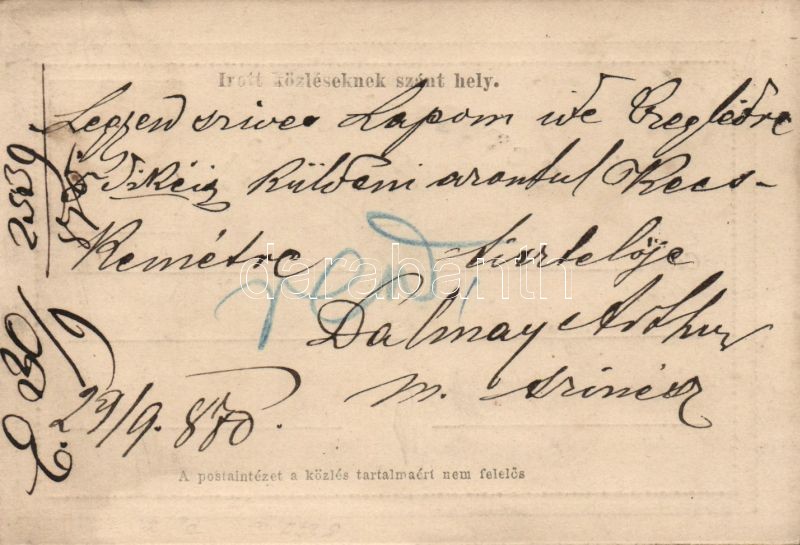 Irott közléseknek szánt hely.
Legyen szives Lapom ide Czeglédre
küldeni azontul Kecs-
kemétre tisztelője
Dálmay Arthur
m. szinész
29/9. 870.
2539
870.
E. 30/9
A postaintézet a közlés tartalmaért nem felelős
darabanth